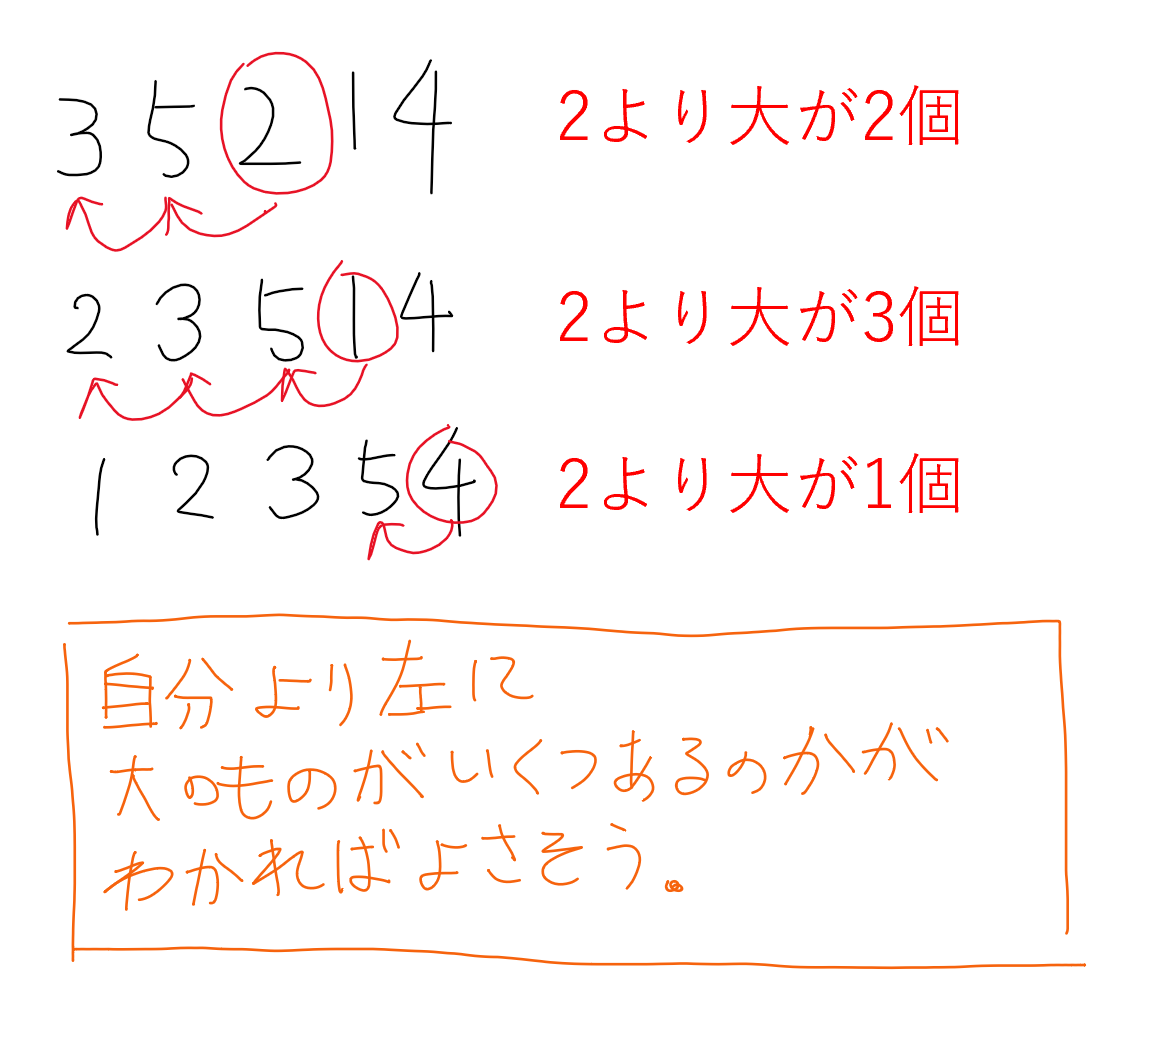 3 5 2 1 4 2より大が2個
2 3 5 1 4 2より大が3個
1 2 3 5 4 2より大が1個
自分より左に
大のものがいくつあるのかが
わかればよさそう。